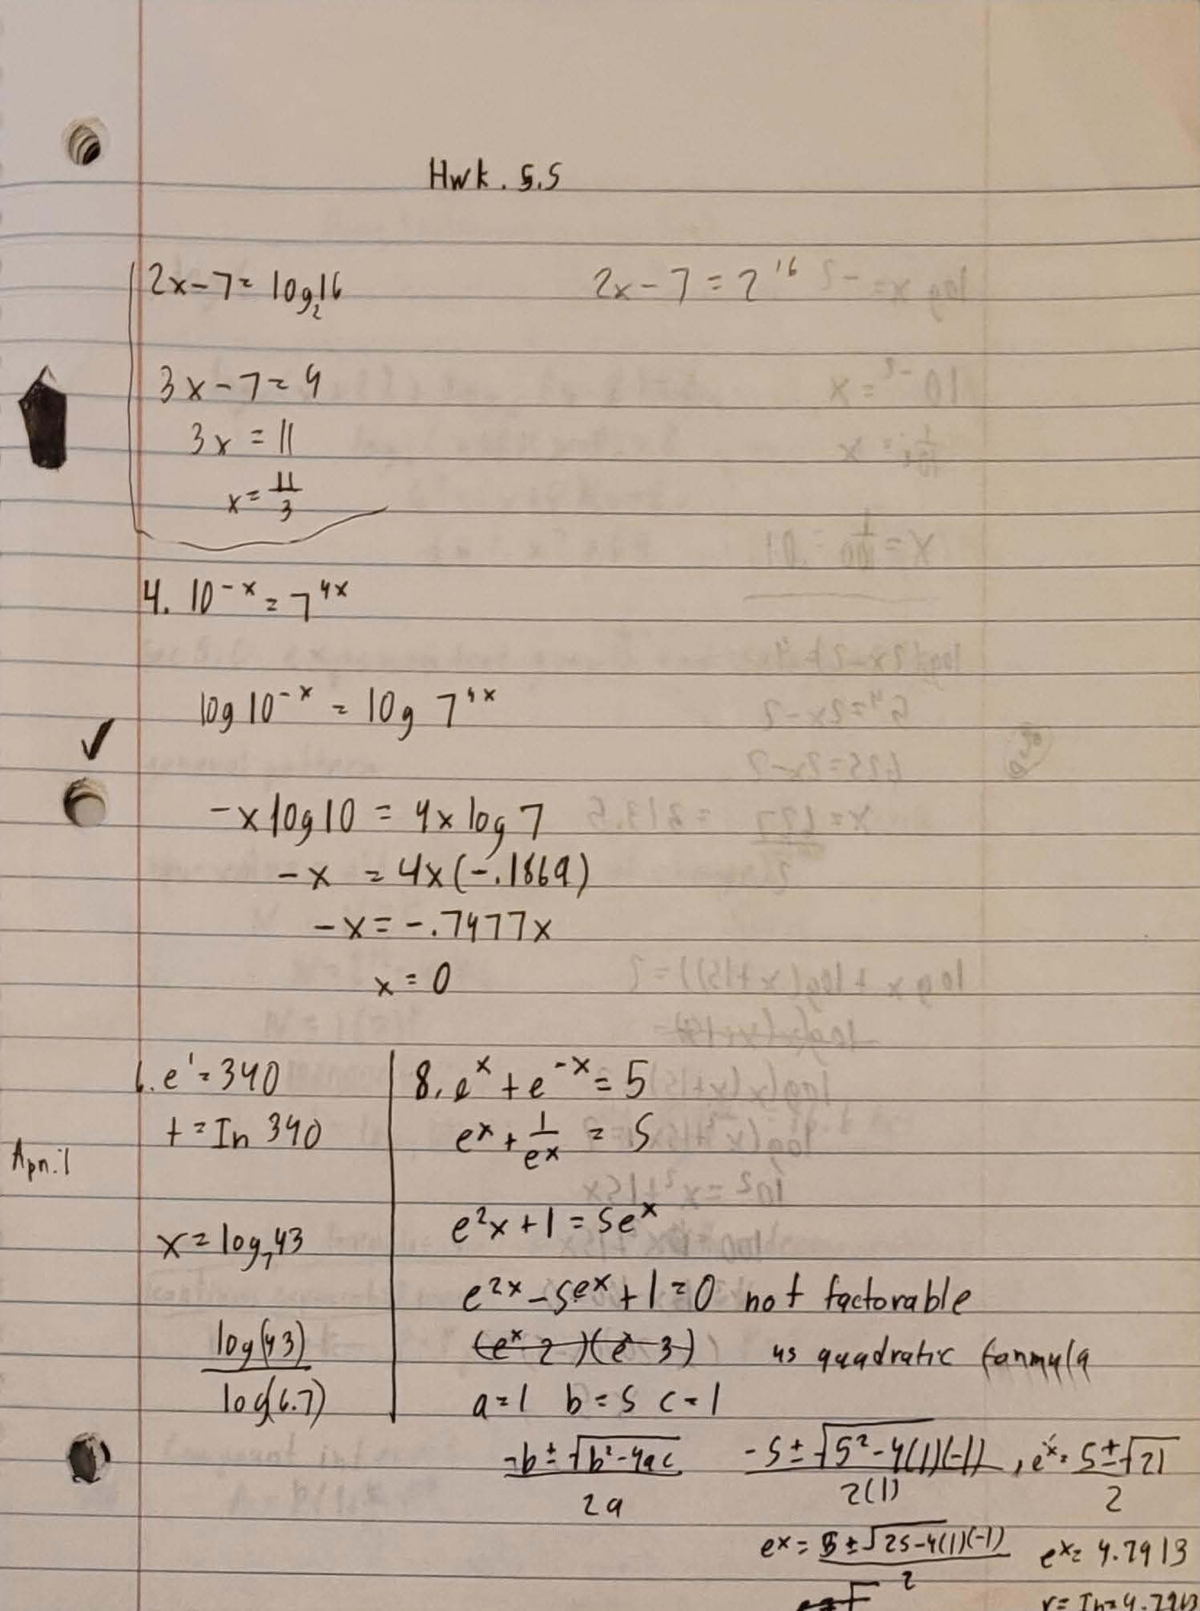 Hwk. 5.5
2x-7= log₂16
2x-7=2¹⁶
3x-7=4
3x=11
x=11/3
4. 10⁻ˣ=7⁴ˣ
log10⁻ˣ = log 7⁴ˣ
-xlog10 = 4xlog7
-x = 4x(-.1869)
-x=-.7477x
x=0
6. e¹=340
t=In 340
April
x=log₇43
log(43)/log(6.7)
8. eˣ+e⁻ˣ=5
eˣ+1/eˣ=5
e²x+1=5eˣ
e²ˣ-5eˣ+1=0 not factorable
(eˣ 2)(eˣ 3) us quadratic
a=1 b=5 c=1
-b±√b²-4ac/2a -5±√5²-4(1)(-1)/2(1), eˣ=5±√21/2
eˣ=5±√25-4(1)(-1)/2 eˣ=4.7913